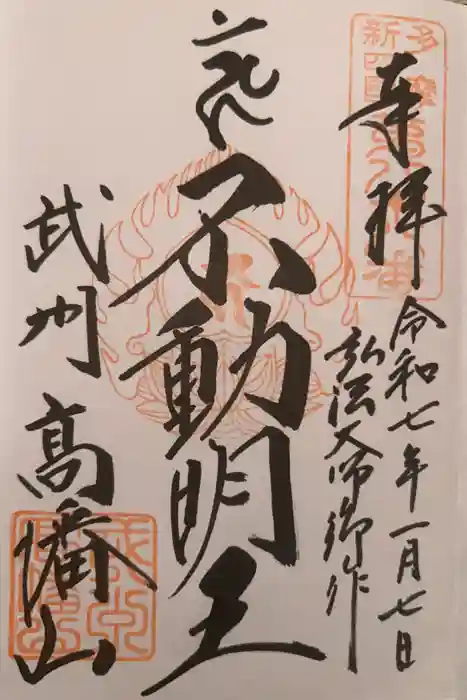 奉拝
令和七年一月七日
弘法大師御作
不動明王
武州
高幡山